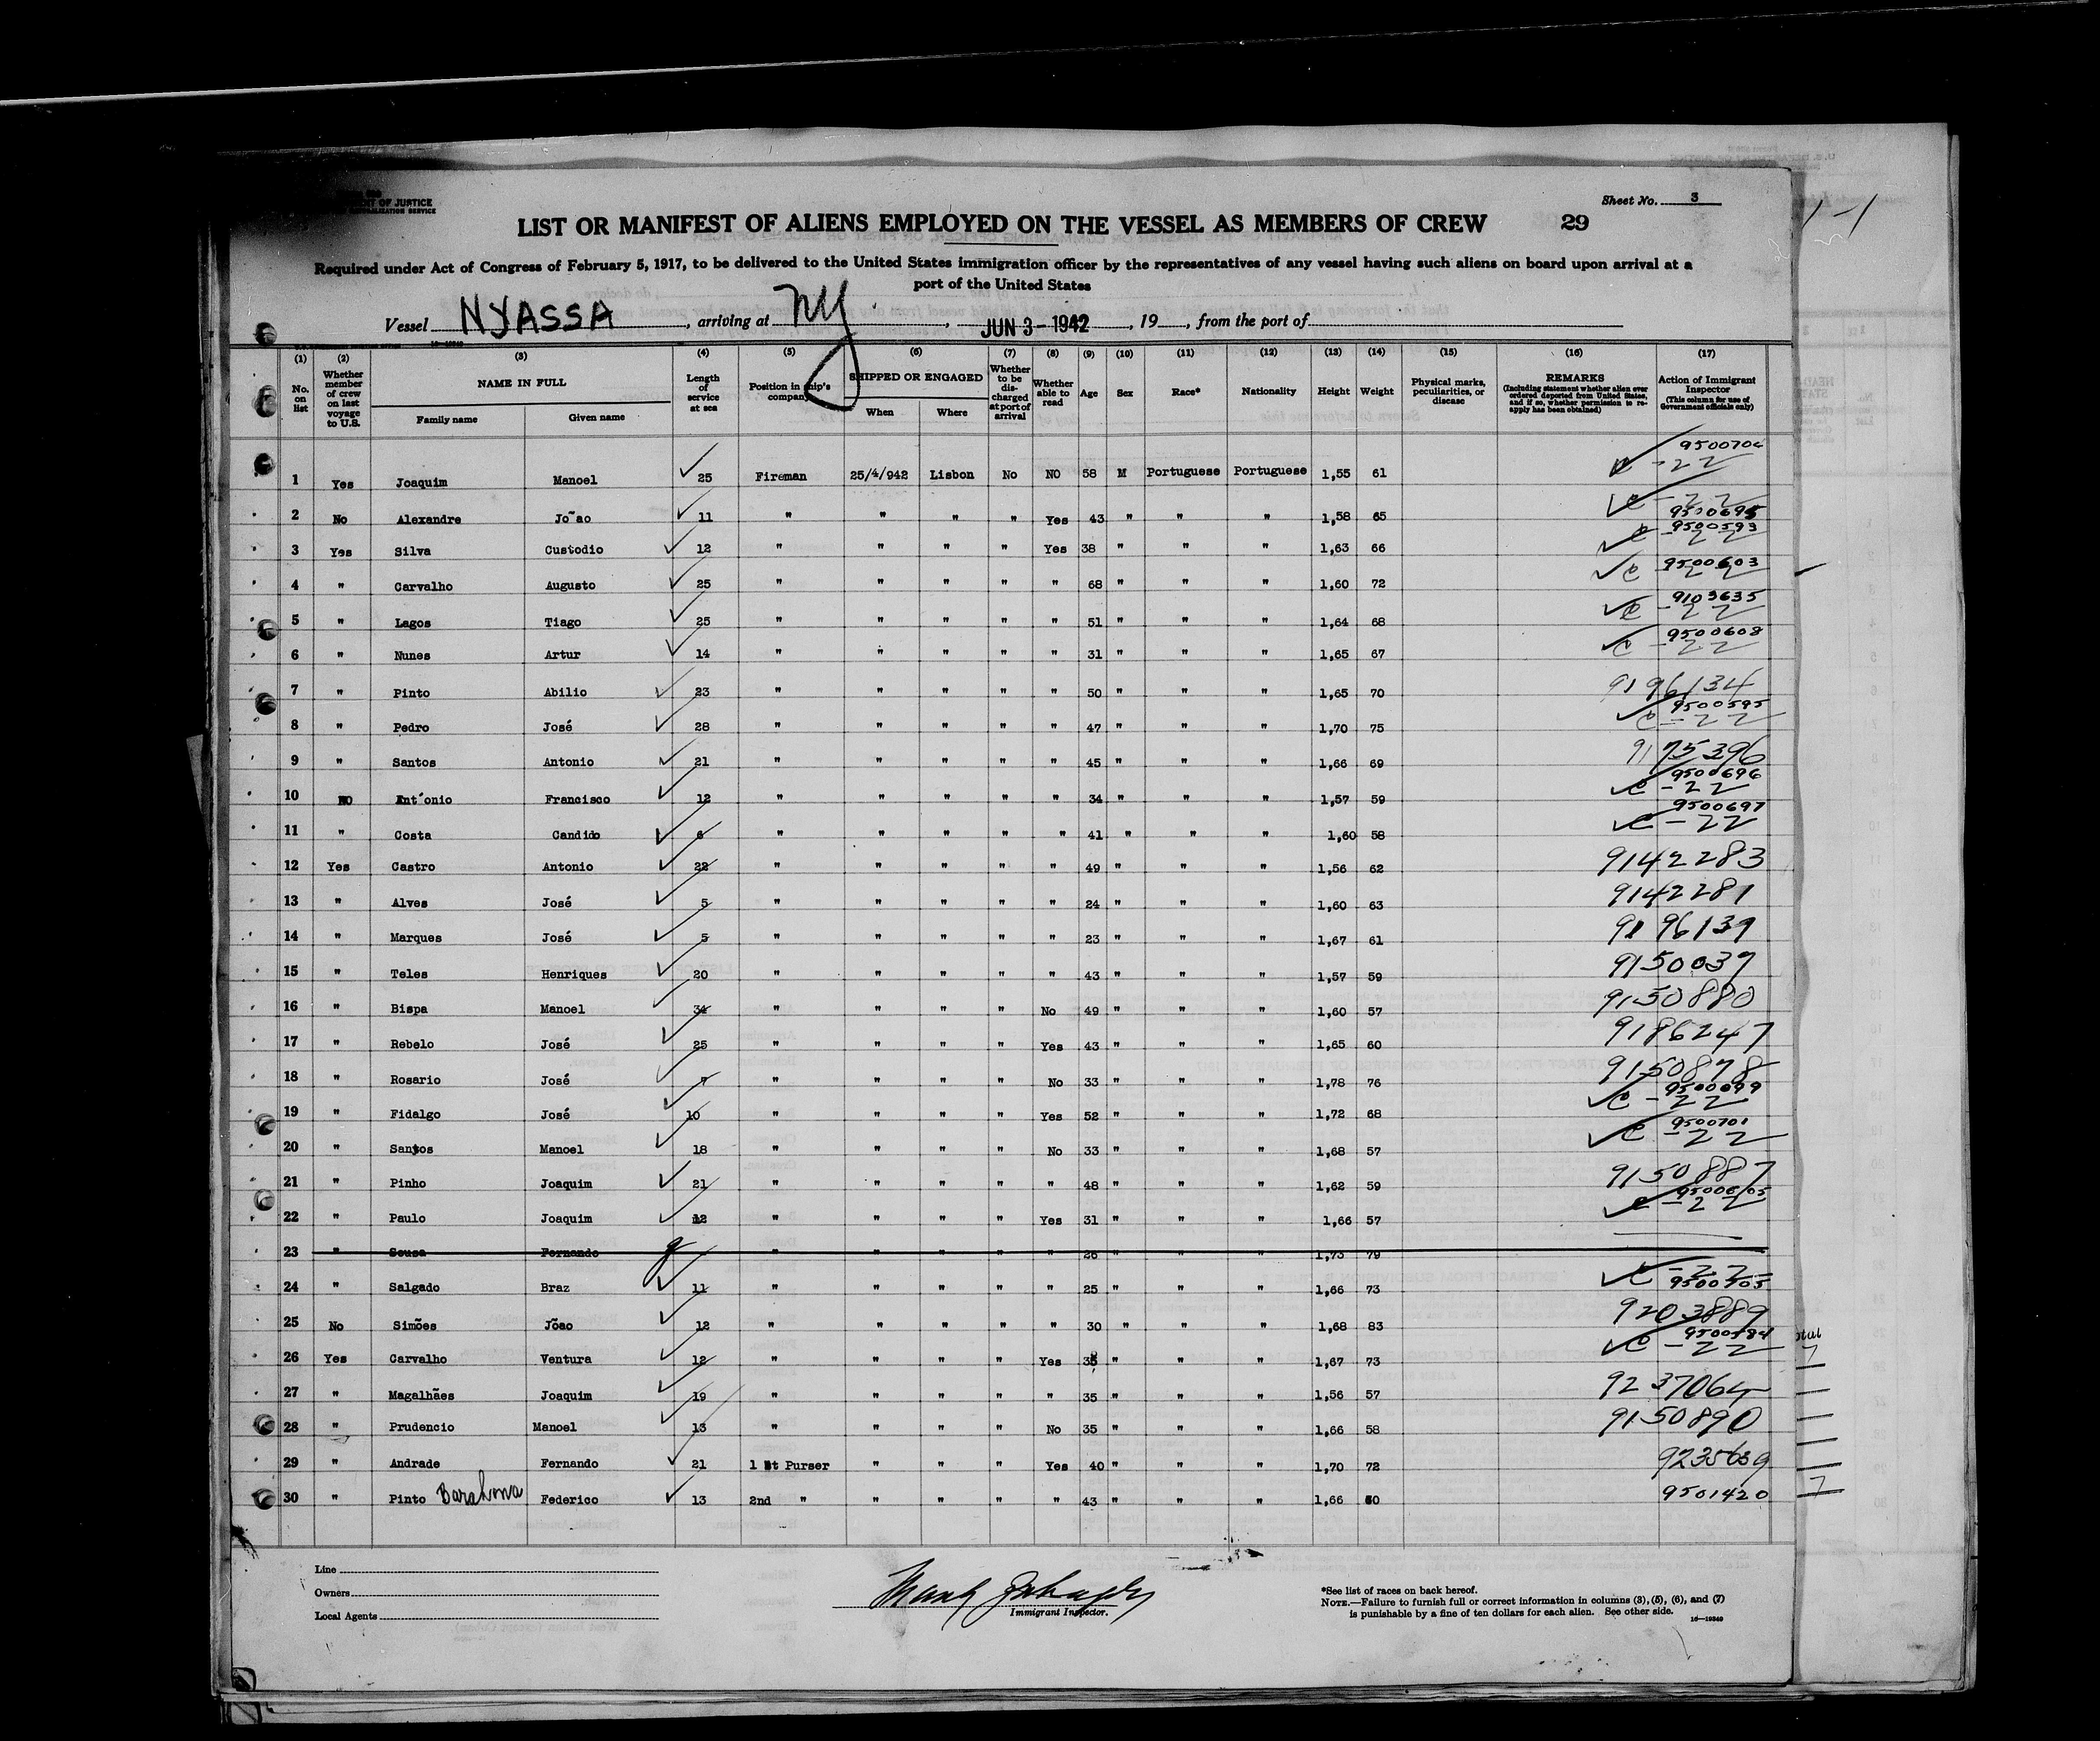 OF JUSTICE
Sheet No. 3
LIST OR MANIFEST OF ALIENS EMPLOYED ON THE VESSEL AS MEMBERS OF CREW 29
Required under Act of Congress of February 5, 1917, to be delivered to the United States immigration officer by the representatives of any vessel having such aliens on board upon arrival at a
port of the United States
Vessel NYASSA, arriving at NY, JUN 3 - 1942, 19, from the port of
(1) (2) (3) (4) (5) (6) (7) (8) (9) (10) (11) (12) (13) (14) (15) (16) (17)
No. on list Whether member of crew on last voyage to U.S. NAME IN FULL Family name Given name Length of service at sea Position in ship's company SHIPPED OR ENGAGED When Where Whether to be discharged at port of arrival Whether able to read Age Sex Race* Nationality Height Weight Physical marks, peculiarities, or disease REMARKS (Including statement whether alien ever ordered deported from United States, and if so, whether permission to reapply has been obtained) Action of Immigrant Inspector (This column for use of Government officials only)
1 Yes Joaquim Manoel 25 Fireman 25/4/942 Lisbon No NO 58 M Portuguese Portuguese 1,55 61
2 No Alexandre Jo~ao 11 " " " " Yes 43 " " " 1,58 65 9500695
3 Yes Silva Custodio 12 " " " " Yes 38 " " " 1,63 66 9500593
4 " Carvalho Augusto 25 " " " " " 68 " " " 1,60 72 9500603
5 " Lagos Tiago 25 " " " " " 51 " " " 1,64 68 9103635
6 " Nunes Artur 14 " " " " " 31 " " " 1,65 67 9500608
7 " Pinto Abilio 23 " " " " " 50 " " " 1,65 70 9196134
8 " Pedro José 28 " " " " " 47 " " " 1,70 75 9500595
9 " Santos Antonio 21 " " " " " 45 " " " 1,66 69 9175396
10 NO Ant´onio Francisco 12 " " " " " 34 " " " 1,57 59 9500696
11 " Costa Candido 6 " " " " " 41 " " " 1,60 58 9500697
12 Yes Castro Antonio 22 " " " " " 49 " " " 1,56 62 9142283
13 " Alves José 5 " " " " " 24 " " " 1,60 63 9142281
14 " Marques José 5 " " " " " 23 " " " 1,67 61 9196139
15 " Teles Henriques 20 " " " " " 43 " " " 1,57 59 9150037
16 " Bispa Manoel 34 " " " " No 49 " " " 1,60 57 9150880
17 " Rebelo José 25 " " " " Yes 43 " " " 1,65 60 9186247
18 " Rosario José 7 " " " " No 33 " " " 1,78 76 9150878
19 " Fidalgo José 10 " " " " Yes 52 " " " 1,72 68
20 " Santos Manoel 18 " " " " No 33 " " " 1,68 57 9500701
21 " Pinho Joaquim 21 " " " " " 48 " " " 1,62 59 9150887
22 " Paulo Joaquim 12 " " " " Yes 31 " " " 1,66 57
23 " Sousa Fernando " " " " " 26 " " " 1,73 79
24 " Salgado Braz 11 " " " " " 25 " " " 1,66 73 9500705
25 No Simões Jõao 12 " " " " " 30 " " " 1,68 83 9203889
26 Yes Carvalho Ventura 12 " " " " Yes 35 " " " 1,67 73 9500584
27 " Magalhães Joaquim 19 " " " " " 35 " " " 1,56 57 9237064
28 " Prudencio Manoel 13 " " " " No 35 " " " 1,66 58 9150890
29 " Andrade Fernando 21 1 st Purser " " " Yes 40 " " " 1,70 72
30 " Pinto Barahona Federico 13 2nd " " " " " 43 " " " 1,66 60 9501420
Line
Owners
Local Agents
Immigrant Inspector.
*See list of races on back hereof.
NOTE.—Failure to furnish full or correct information in columns (3), (5), (6), and (7)
is punishable by a fine of ten dollars for each alien. See other side. 16—19340